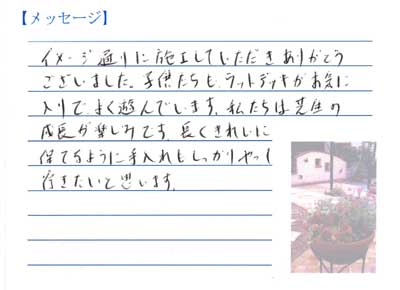 【メッセージ】
イメージ通りに施工していただきありがとう
ございました。子供たちも、ラットデッキがお気に
入りで、よく遊んでいます。私たちは芝生の
成長が楽しみです。長くきれいに
保てるように手入れもしっかりやって
行きたいと思います。